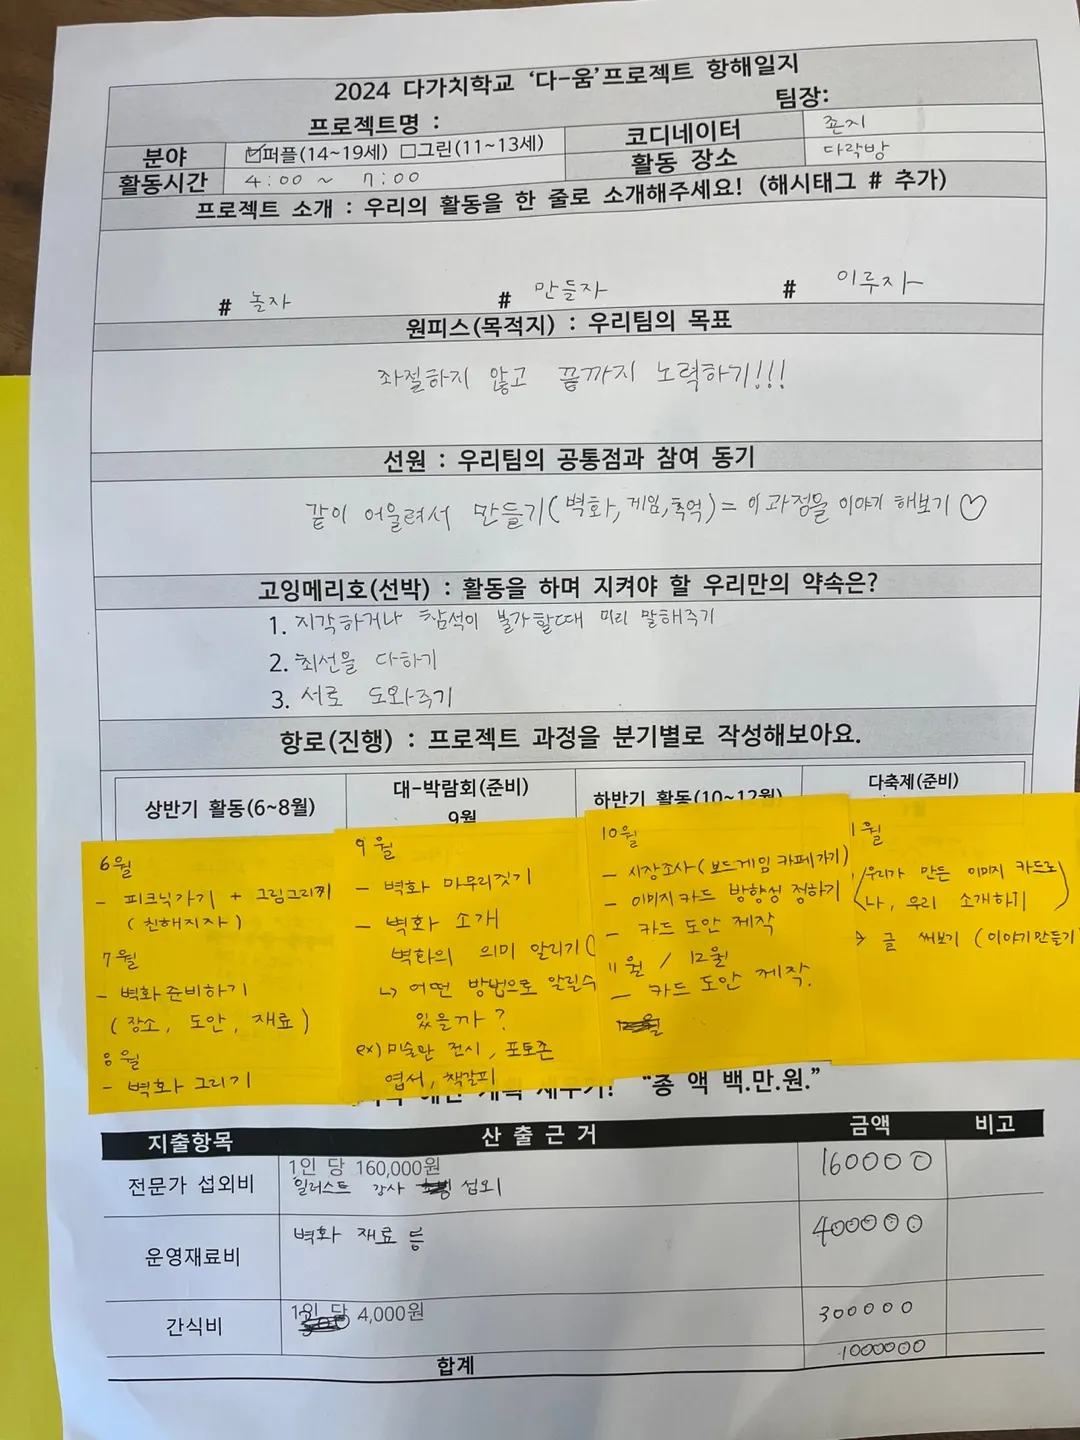 2024 다가치학교 '다-움'프로젝트 항해일지
프로젝트명 :
팀장:
분야
☑퍼플(14~19세) □그린(11~13세)
코디네이터
쫀지
활동시간
4:00 ~ 7:00
활동 장소
다락방
프로젝트 소개 : 우리의 활동을 한 줄로 소개해주세요! (해시태그 # 추가)
# 놀자 # 만들자 # 이루자
원피스(목적지) : 우리팀의 목표
좌절하지 않고 끝까지 노력하기!!!
선원 : 우리팀의 공통점과 참여 동기
같이 어울려서 만들기(벽화, 게임, 추억) = 이 과정을 이야기 해보기♡
고잉메리호(선박) : 활동을 하며 지켜야 할 우리만의 약속은?
1. 지각하거나 참석이 불가할때 미리 말해주기
2. 최선을 다하기
3. 서로 도와주기
항로(진행) : 프로젝트 과정을 분기별로 작성해보아요.
상반기 활동(6~8월)
대-박람회(준비)
9월
하반기 활동(10~12월)
다축제(준비)
6월
- 피크닉가기 + 그림그리기
(친해지자)
7월
- 벽화준비하기
(장소, 도안, 재료)
8월
- 벽화 그리기
9월
- 벽화 마무리짓기
- 벽화 소개
벽화의 의미 알리기(
↳ 어떤 방법으로 알릴수
있을까?
ex) 미술관 전시, 포토존
엽서, 책갈피
10월
- 시장조사(보드게임 카페가기)
- 이미지카드 방향성 정하기
- 카드 도안 제작
11월 / 12월
- 카드 도안 제작.
1월
(우리가 만든 이미지 카드로
나, 우리 소개하기)
→ 글 써보기 (이야기만들기
"총 액 백.만.원."
지출항목
산 출 근 거
금액
비고
전문가 섭외비
1인 당 160,000원
일러스트 강사 섭외
160000
운영재료비
벽화 재료 등
400000
간식비
1인 당 4,000원
300000
합계
1000000